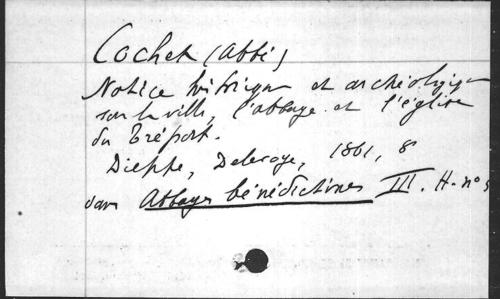 Cochet (Abbé)
Notice historique et archéologique
sur la ville, l'abbaye et l'église
du Tréport.
Dieppe, Delevoye, 1861, 8°
dans Abbayes bénédictines III. H-n° 5